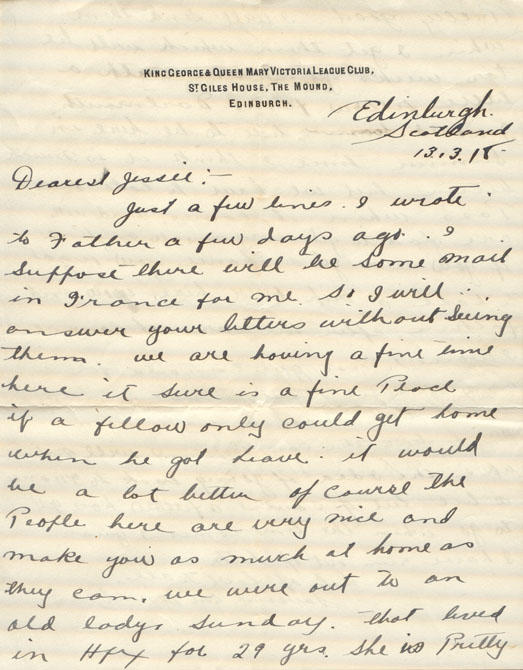 King George & Queen Mary Victoria League Club,
St Giles House, The Mound,
Edinburgh.
Edinburgh.
Scotland
13.3.18
Dearest Jessie:-
Just a few lines. I wrote
to Father a few days ago. I
suppose there will be some mail
in France for me. So I will
answer your letters without seeing
them. we are having a fine time
here it sure is a fine Place
if a fellow only could get home
when he got leave. it would
be a lot better of course the
People here are very nice and
make you as much at home as
they can. we were out to an
old ladys Sunday. that lived
in Hfx for 29 yrs. she is Pretty